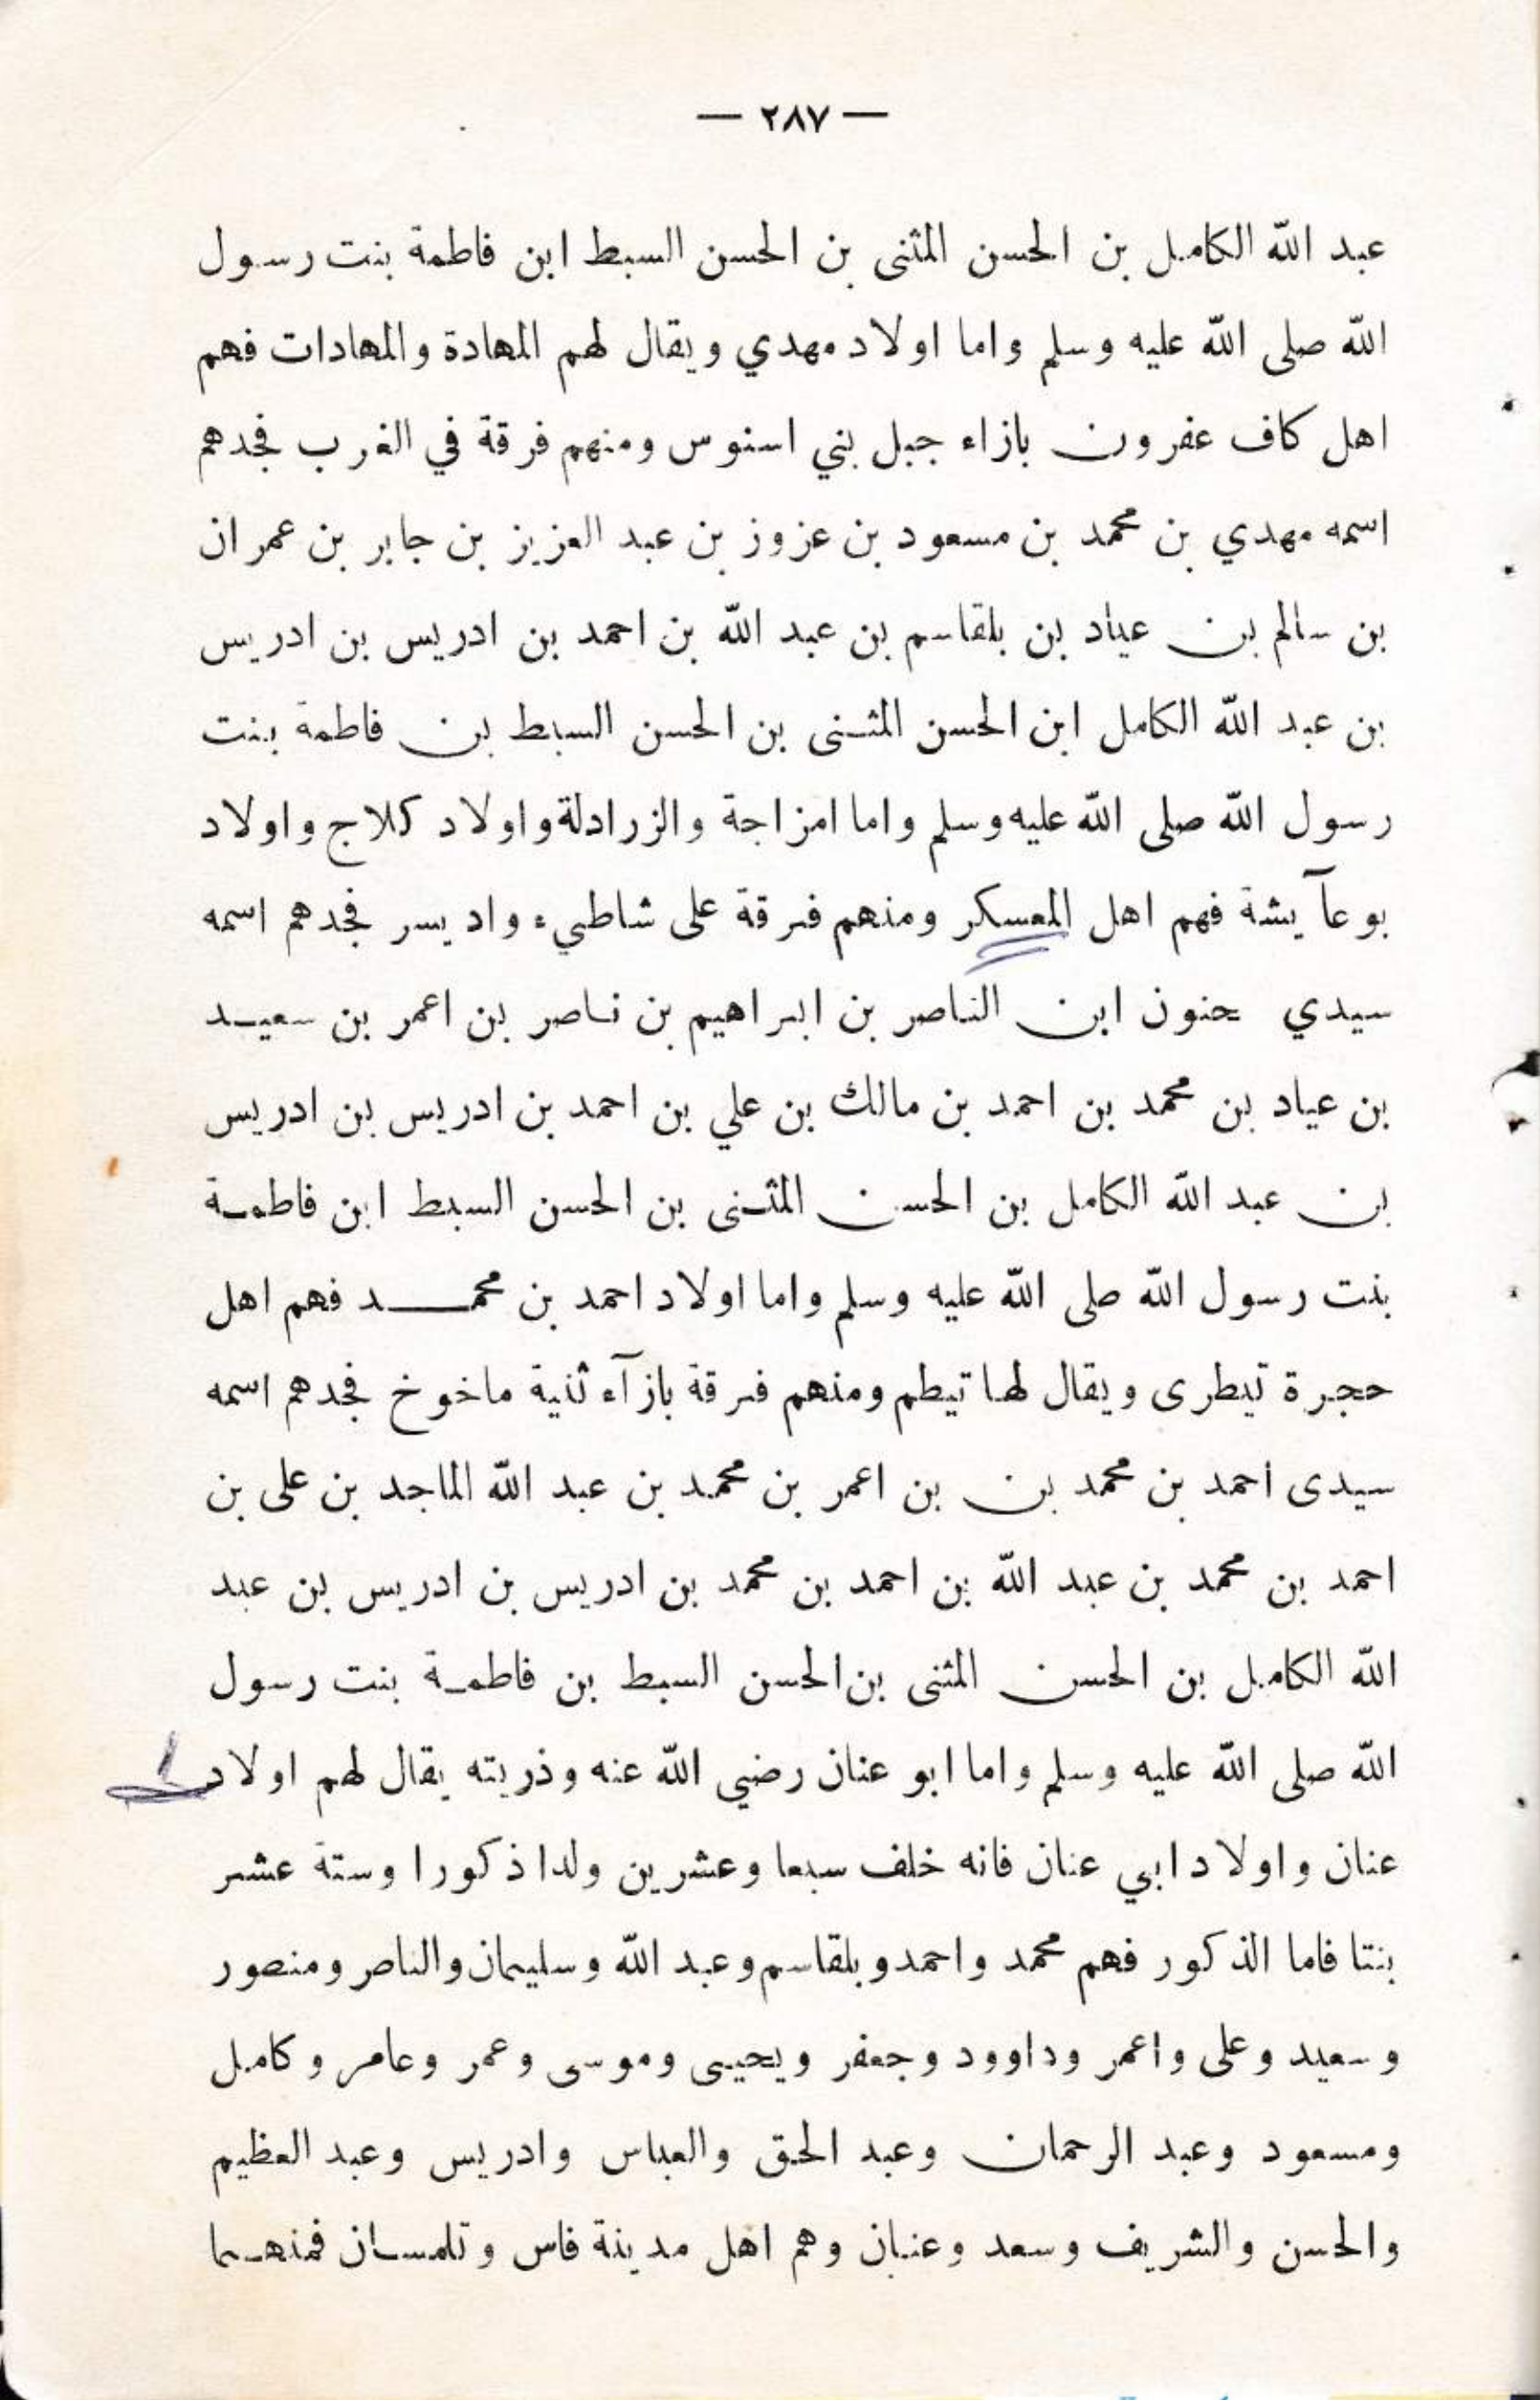 — ٢٨٧ —
عبد الله الكامل بن الحسن المثنى بن الحسن السبط ابن فاطمة بنت رسول
الله صلى الله عليه وسلم واما اولاد مهدي ويقال لهم المهادة والمهادات فهم
اهل كاف عفرون بازاء جبل بني اسنوس ومنهم فرقة في الغرب فجدهم
اسمه مهدي بن محمد بن مسعود بن عزوز بن عبد العزيز بن جابر بن عمران
بن سالم بن عياد بن بلقاسم بن عبد الله بن احمد بن ادريس بن ادريس
بن عبد الله الكامل ابن الحسن المثنى بن الحسن السبط بن فاطمة بنت
رسول الله صلى الله عليه وسلم واما امزاجة والزرادلة واولاد كلاج واولاد
بوعآيشة فهم اهل المعسكر ومنهم فرقة على شاطيء واد يسر فجدهم اسمه
سيدي حنون ابن الناصر بن ابراهيم بن ناصر بن اعمر بن سعيد
بن عياد بن محمد بن احمد بن مالك بن علي بن احمد بن ادريس بن ادريس
بن عبد الله الكامل بن الحسن المثنى بن الحسن السبط ابن فاطمة
بنت رسول الله صلى الله عليه وسلم واما اولاد احمد بن محمد فهم اهل
حجرة تيطرى ويقال لها تيطم ومنهم فرقة بازآء ثنية ماخوخ فجدهم اسمه
سيدى احمد بن محمد بن بن اعمر بن محمد بن عبد الله الماجد بن على بن
احمد بن محمد بن عبد الله بن احمد بن محمد بن ادريس بن ادريس بن عبد
الله الكامل بن الحسن المثنى بن الحسن السبط بن فاطمة بنت رسول
الله صلى الله عليه وسلم واما ابو عنان رضي الله عنه وذريته يقال لهم اولاد
عنان واولاد ابي عنان فانه خلف سبعا وعشرين ولدا ذكورا وستة عشر
بنتا فاما الذكور فهم محمد واحمد وبلقاسم وعبد الله وسليمان والناصر ومنصور
وسعيد وعلى واعمر وداوود وجعفر ويحيى وموسى وعمر وعامر وكامل
ومسعود وعبد الرحمان وعبد الحق والعباس وادريس وعبد العظيم
والحسن والشريف وسعد وعنان وهم اهل مدينة فاس وتلمسان فمنهما